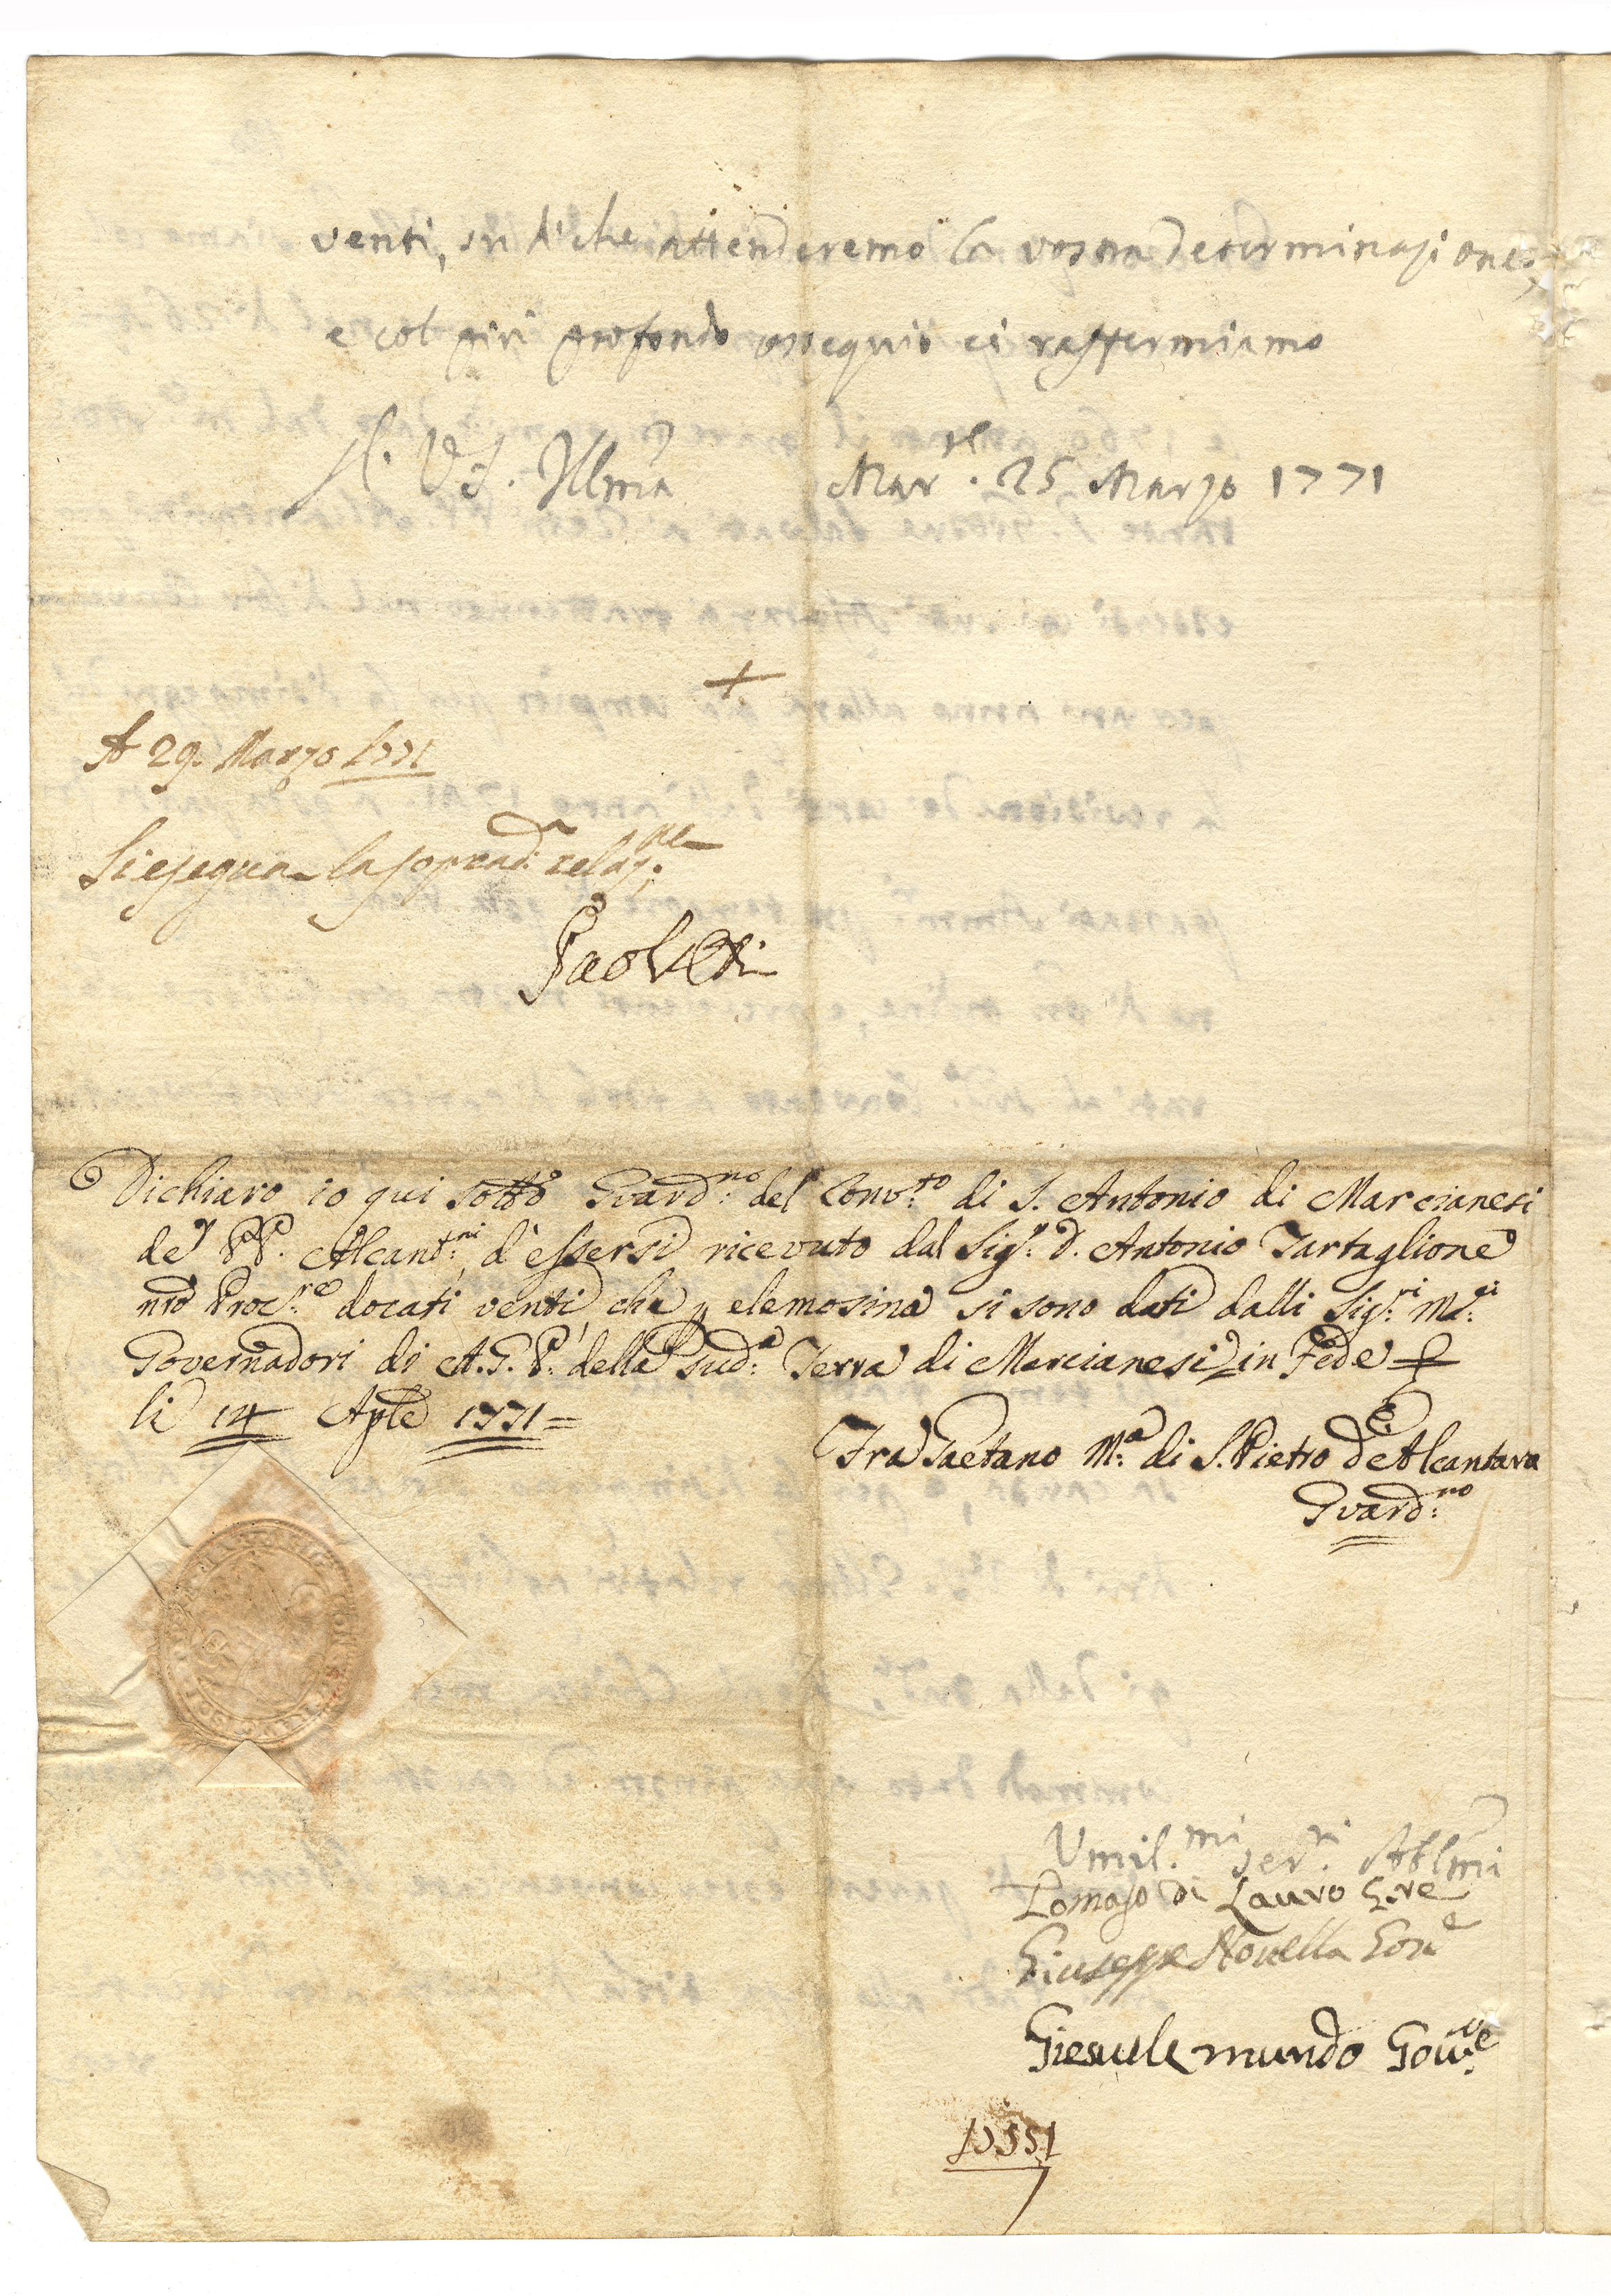 venti, su di che attenderemo la vostra determinazione,
e col più profondo ossequio ci raffermiamo
Di V. S. Illma Mar. 25 Marzo 1771
+
A 29. Marzo 1771
Si esegua la soprad.a relaz.ne
Paoletti
Dichiaro io qui sotto Guard.no del Conv.to di S. Antonio di Marcianesi
de' PP. Alcant.ni d'essersi ricevuto dal Sig.r D. Antonio Tartaglione
nro Proc.re docati venti, che p elemosina si sono dati dalli Sig.ri M.ci
Governadori di A. G. P. della sud.a Terra di Marcianesi, in Fede
li 14 Aple 1771=
Fra Gaetano M.a di S. Pietro d'Alcantara
Guard.no
Umil.mi ser.ri Obl.mi
Tomaso di Lauro G.re
Giuseppe Novella Gov.e
Giesuele mundo Gov.re